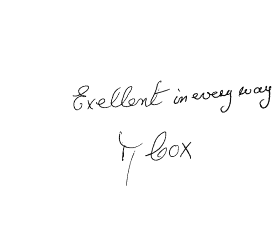 Exellent in every way
T Cox